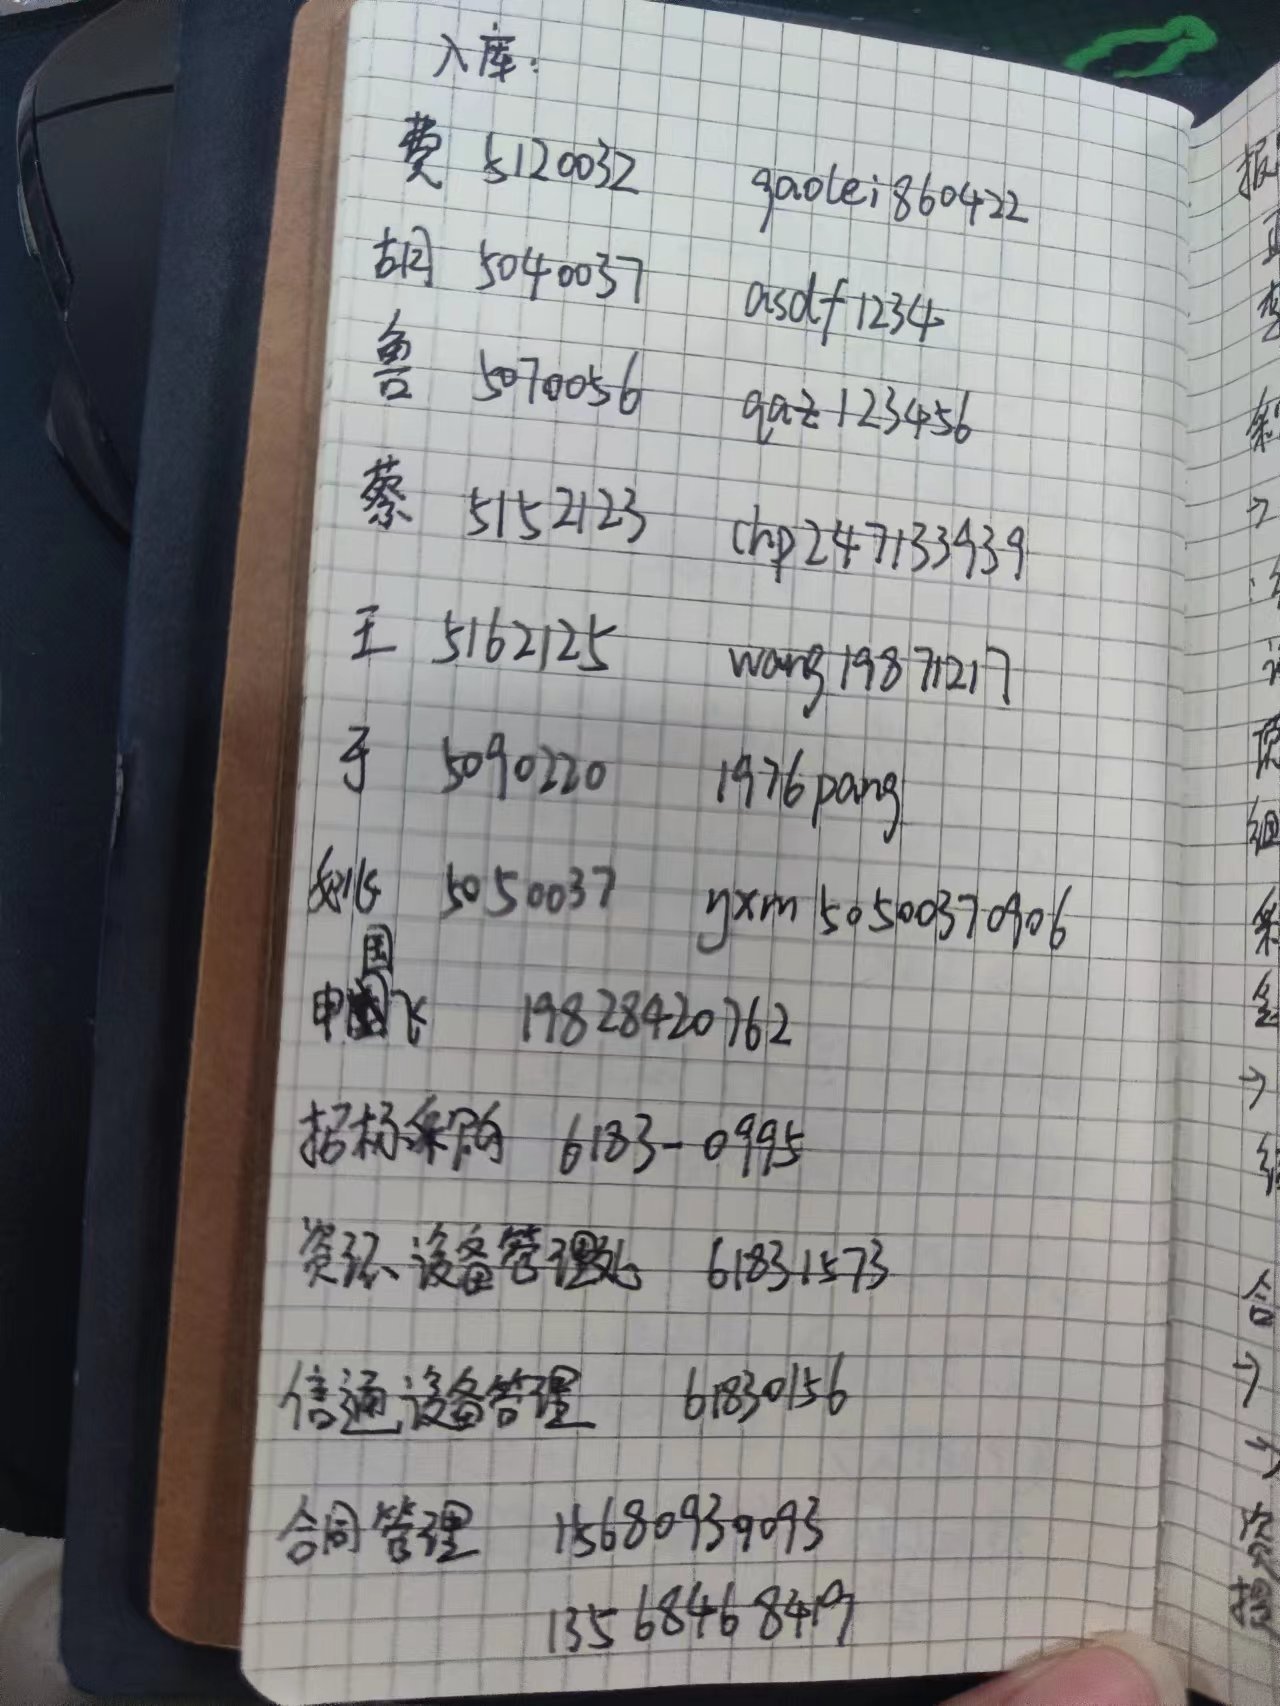 入库:
费 5120032 gaolei860422
胡 5040037 asdf1234
鲁 5070056 qaz123456
蔡 5152123 chp247133939
王 5162125 wang19871217
于 5090220 1976pang
5050037 yxm50500370906
国
申飞 19828420762
招标采购 6183-0995
资环、设备管理处 61831573
信通设备管理 61830156
合同管理 15680939093
13568468419